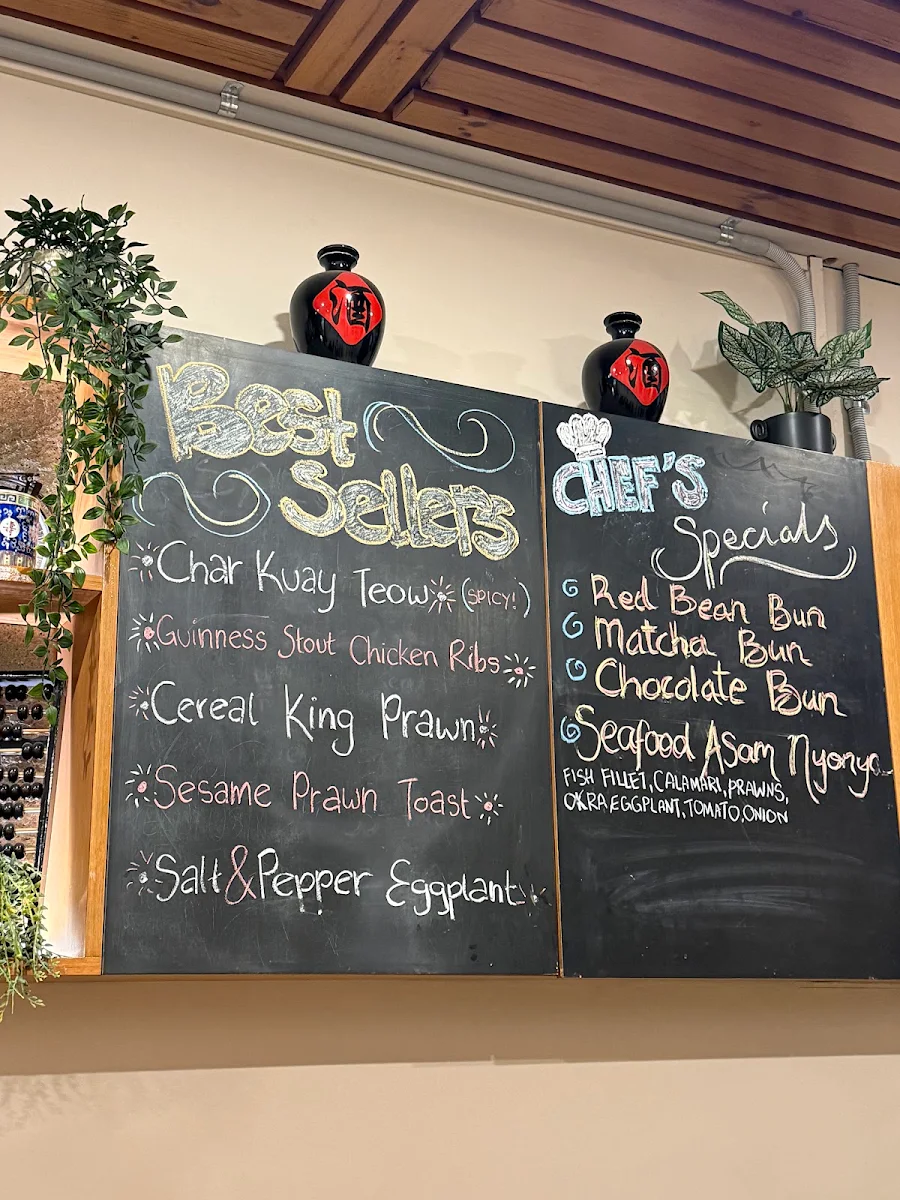 酒
酒
Best
Sellers
Char Kuay Teow (SPICY!)
Guinness Stout Chicken Ribs
Cereal King Prawn
Sesame Prawn Toast
Salt & Pepper Eggplant
CHEF'S
Specials
Red Bean Bun
Matcha Bun
Chocolate Bun
Seafood Asam Nyonya
FISH FILLET, CALAMARI, PRAWNS,
OKRA EGGPLANT, TOMATO, ONION